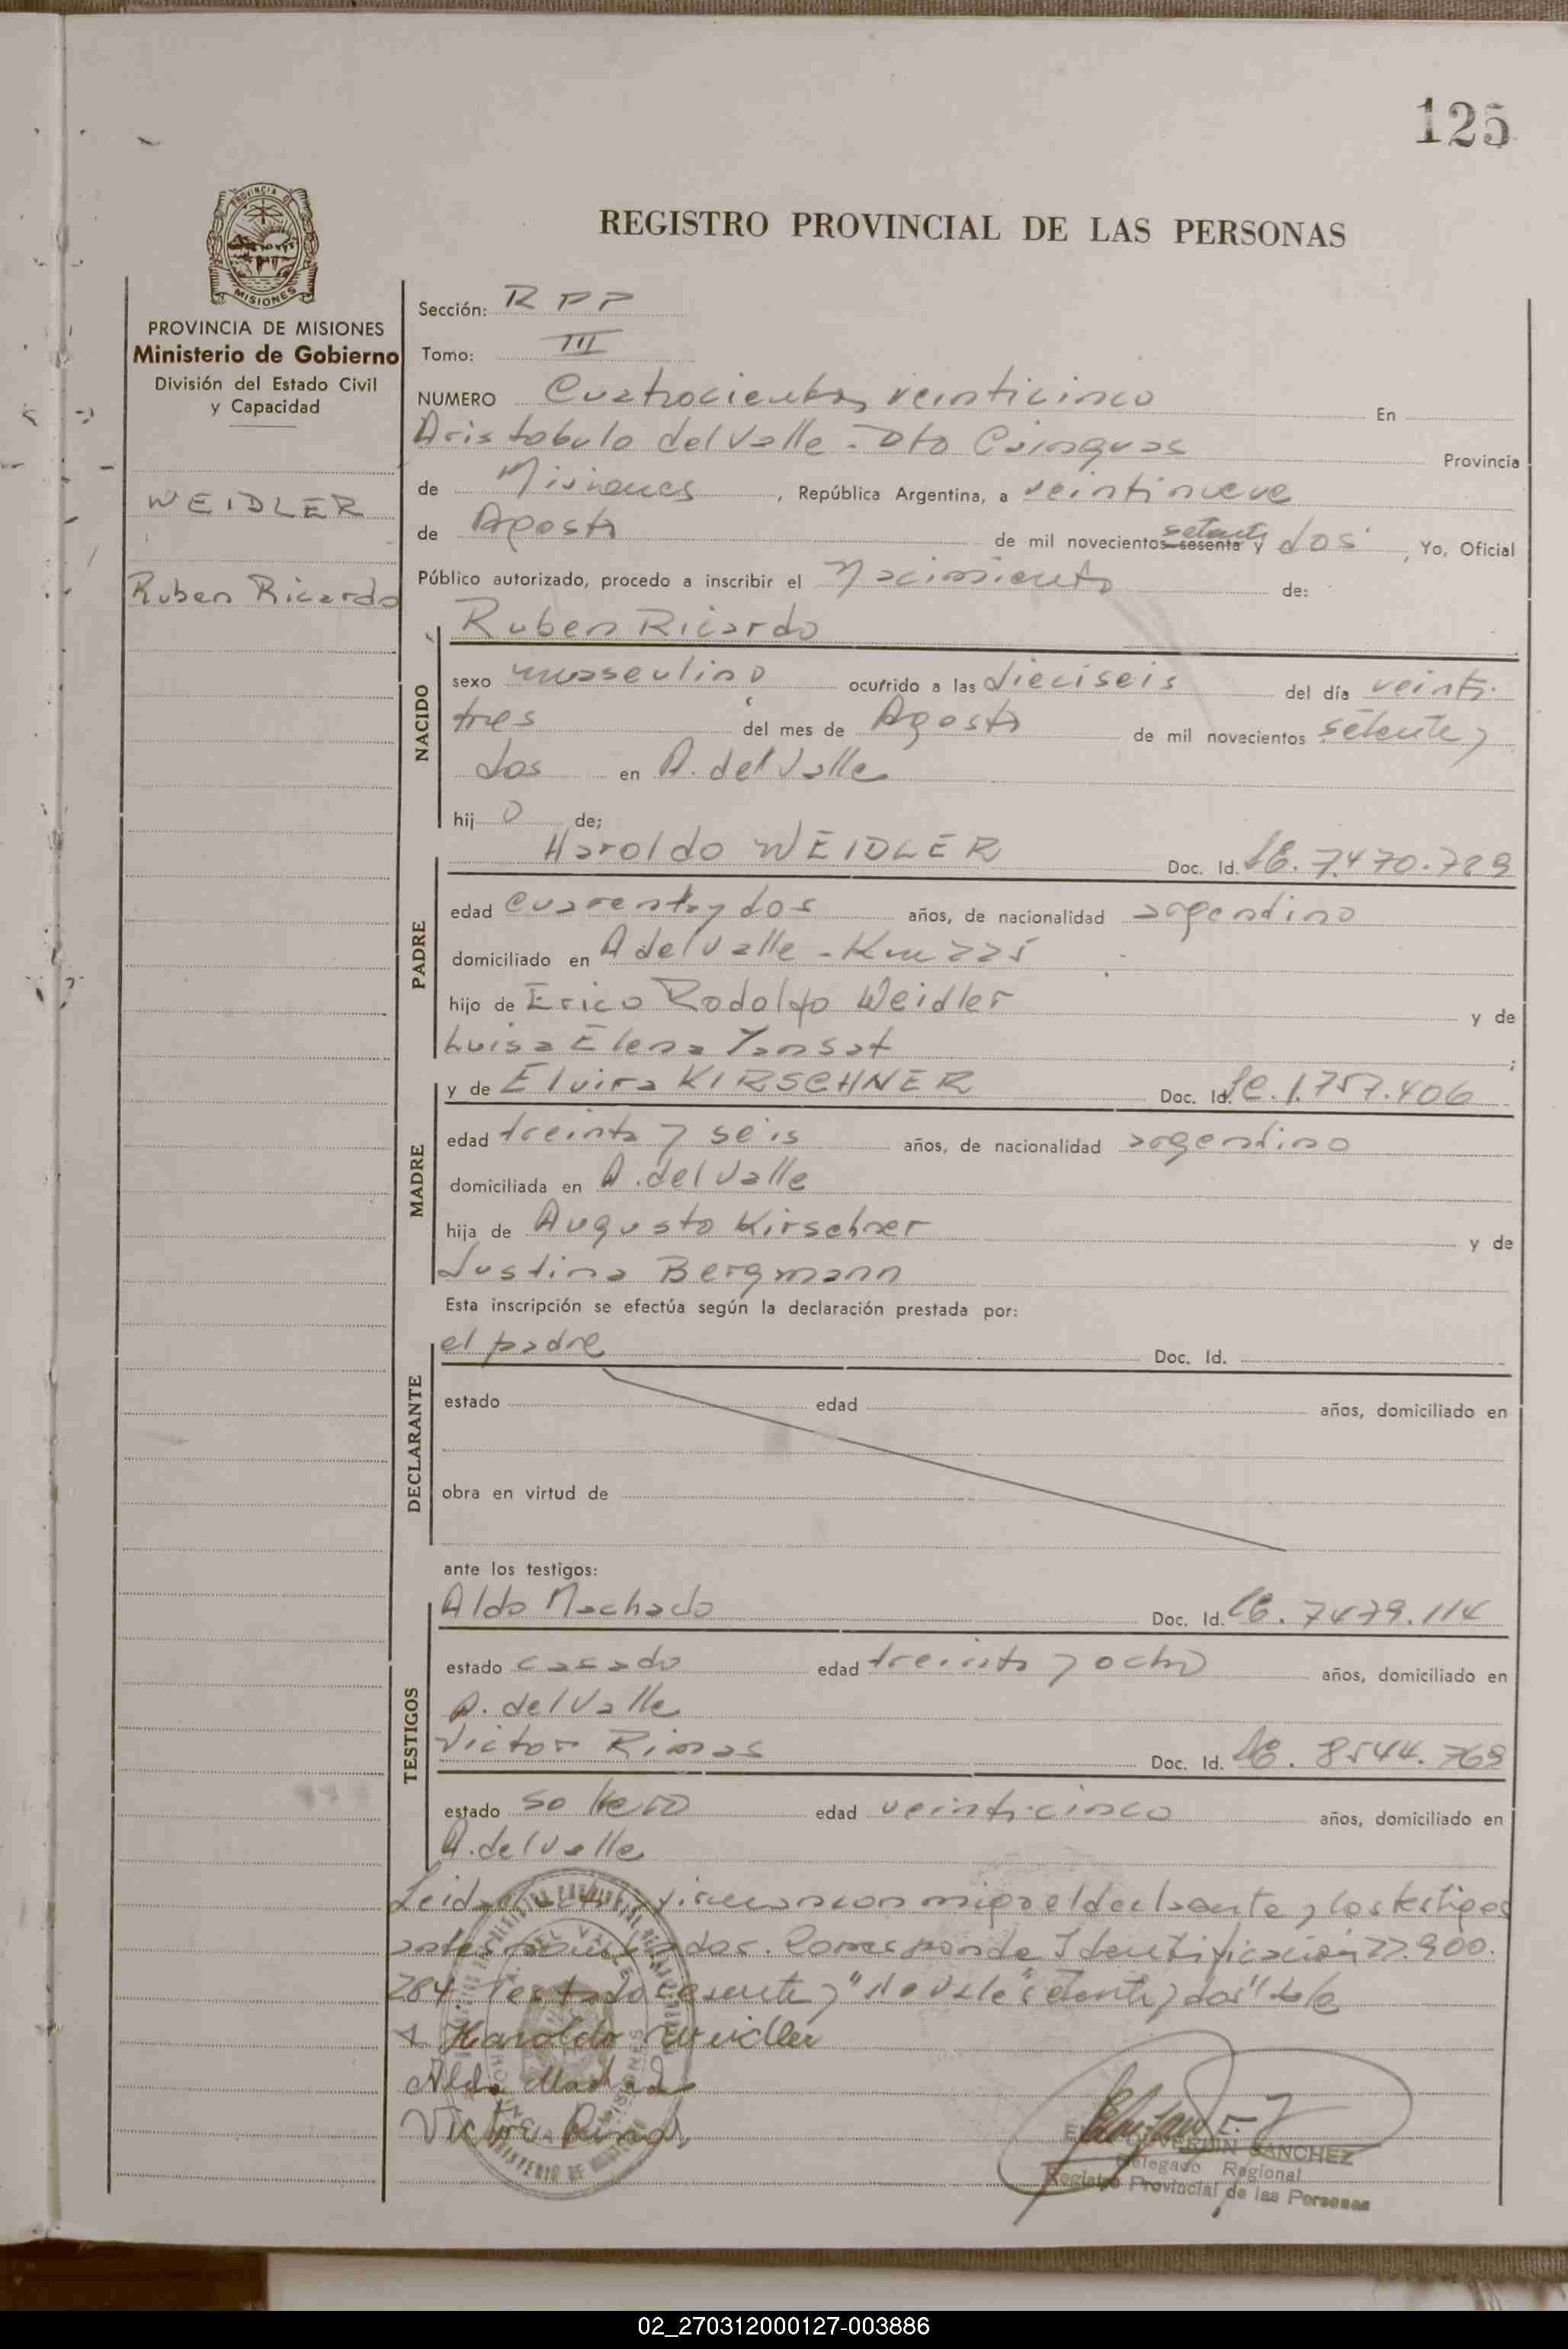 125
PROVINCIA DE
MISIONES
REGISTRO PROVINCIAL DE LAS PERSONAS
PROVINCIA DE MISIONES
Ministerio de Gobierno
División del Estado Civil
y Capacidad
WEIDLER
Ruben Ricardo
Sección: RPP
Tomo: III
NUMERO Cuatrocientos veinticinco En
Aristobulo del Valle - Dto Cainguas Provincia
de Misiones, República Argentina, a veintinueve
de Agosto de mil novecientos sesenta setenta y dos, Yo, Oficial
Público autorizado, procedo a inscribir el Nacimiento de:
NACIDO
Ruben Ricardo
sexo masculino ocurrido a las dieciseis del día veinti
tres del mes de Agosto de mil novecientos setenta y
dos en A. del Valle
hijo de;
PADRE
Haroldo WEIDLER Doc. Id. LE. 7.470.789
edad cuarenta y dos años, de nacionalidad argentino
domiciliado en A del Valle - Km 225
hijo de Erico Rodolfo Weidler y de
Luisa Elena Yansat;
MADRE
y de Elvira KIRSCHNER Doc. Id. LC. 1.757.406
edad treinta y seis años, de nacionalidad argentino
domiciliada en A. del Valle
hija de Augusto Kirschner y de
Justina Bergmann
Esta inscripción se efectúa según la declaración prestada por:
DECLARANTE
el padre Doc. Id.
estado edad años, domiciliado en
obra en virtud de
ante los testigos:
TESTIGOS
Aldo Machado Doc. Id. LE. 7479.114
estado casado edad treinta y ocho años, domiciliado en
A. del Valle
Victor Rimas Doc. Id. LE. 8544.769
estado soltero edad veinticinco años, domiciliado en
A. del Valle
Leida firman con migo el declarante y los testigos
antes mencionados. Corresponde Identificación 22.900.
284. Testado sesenta y "No Vale" setenta y dos" Vale
Haroldo Weidler
Aldo Machado
Victor Rimas
SANCHEZ
Delegado Regional
Registro Provincial de las Personas
02_270312000127-003886